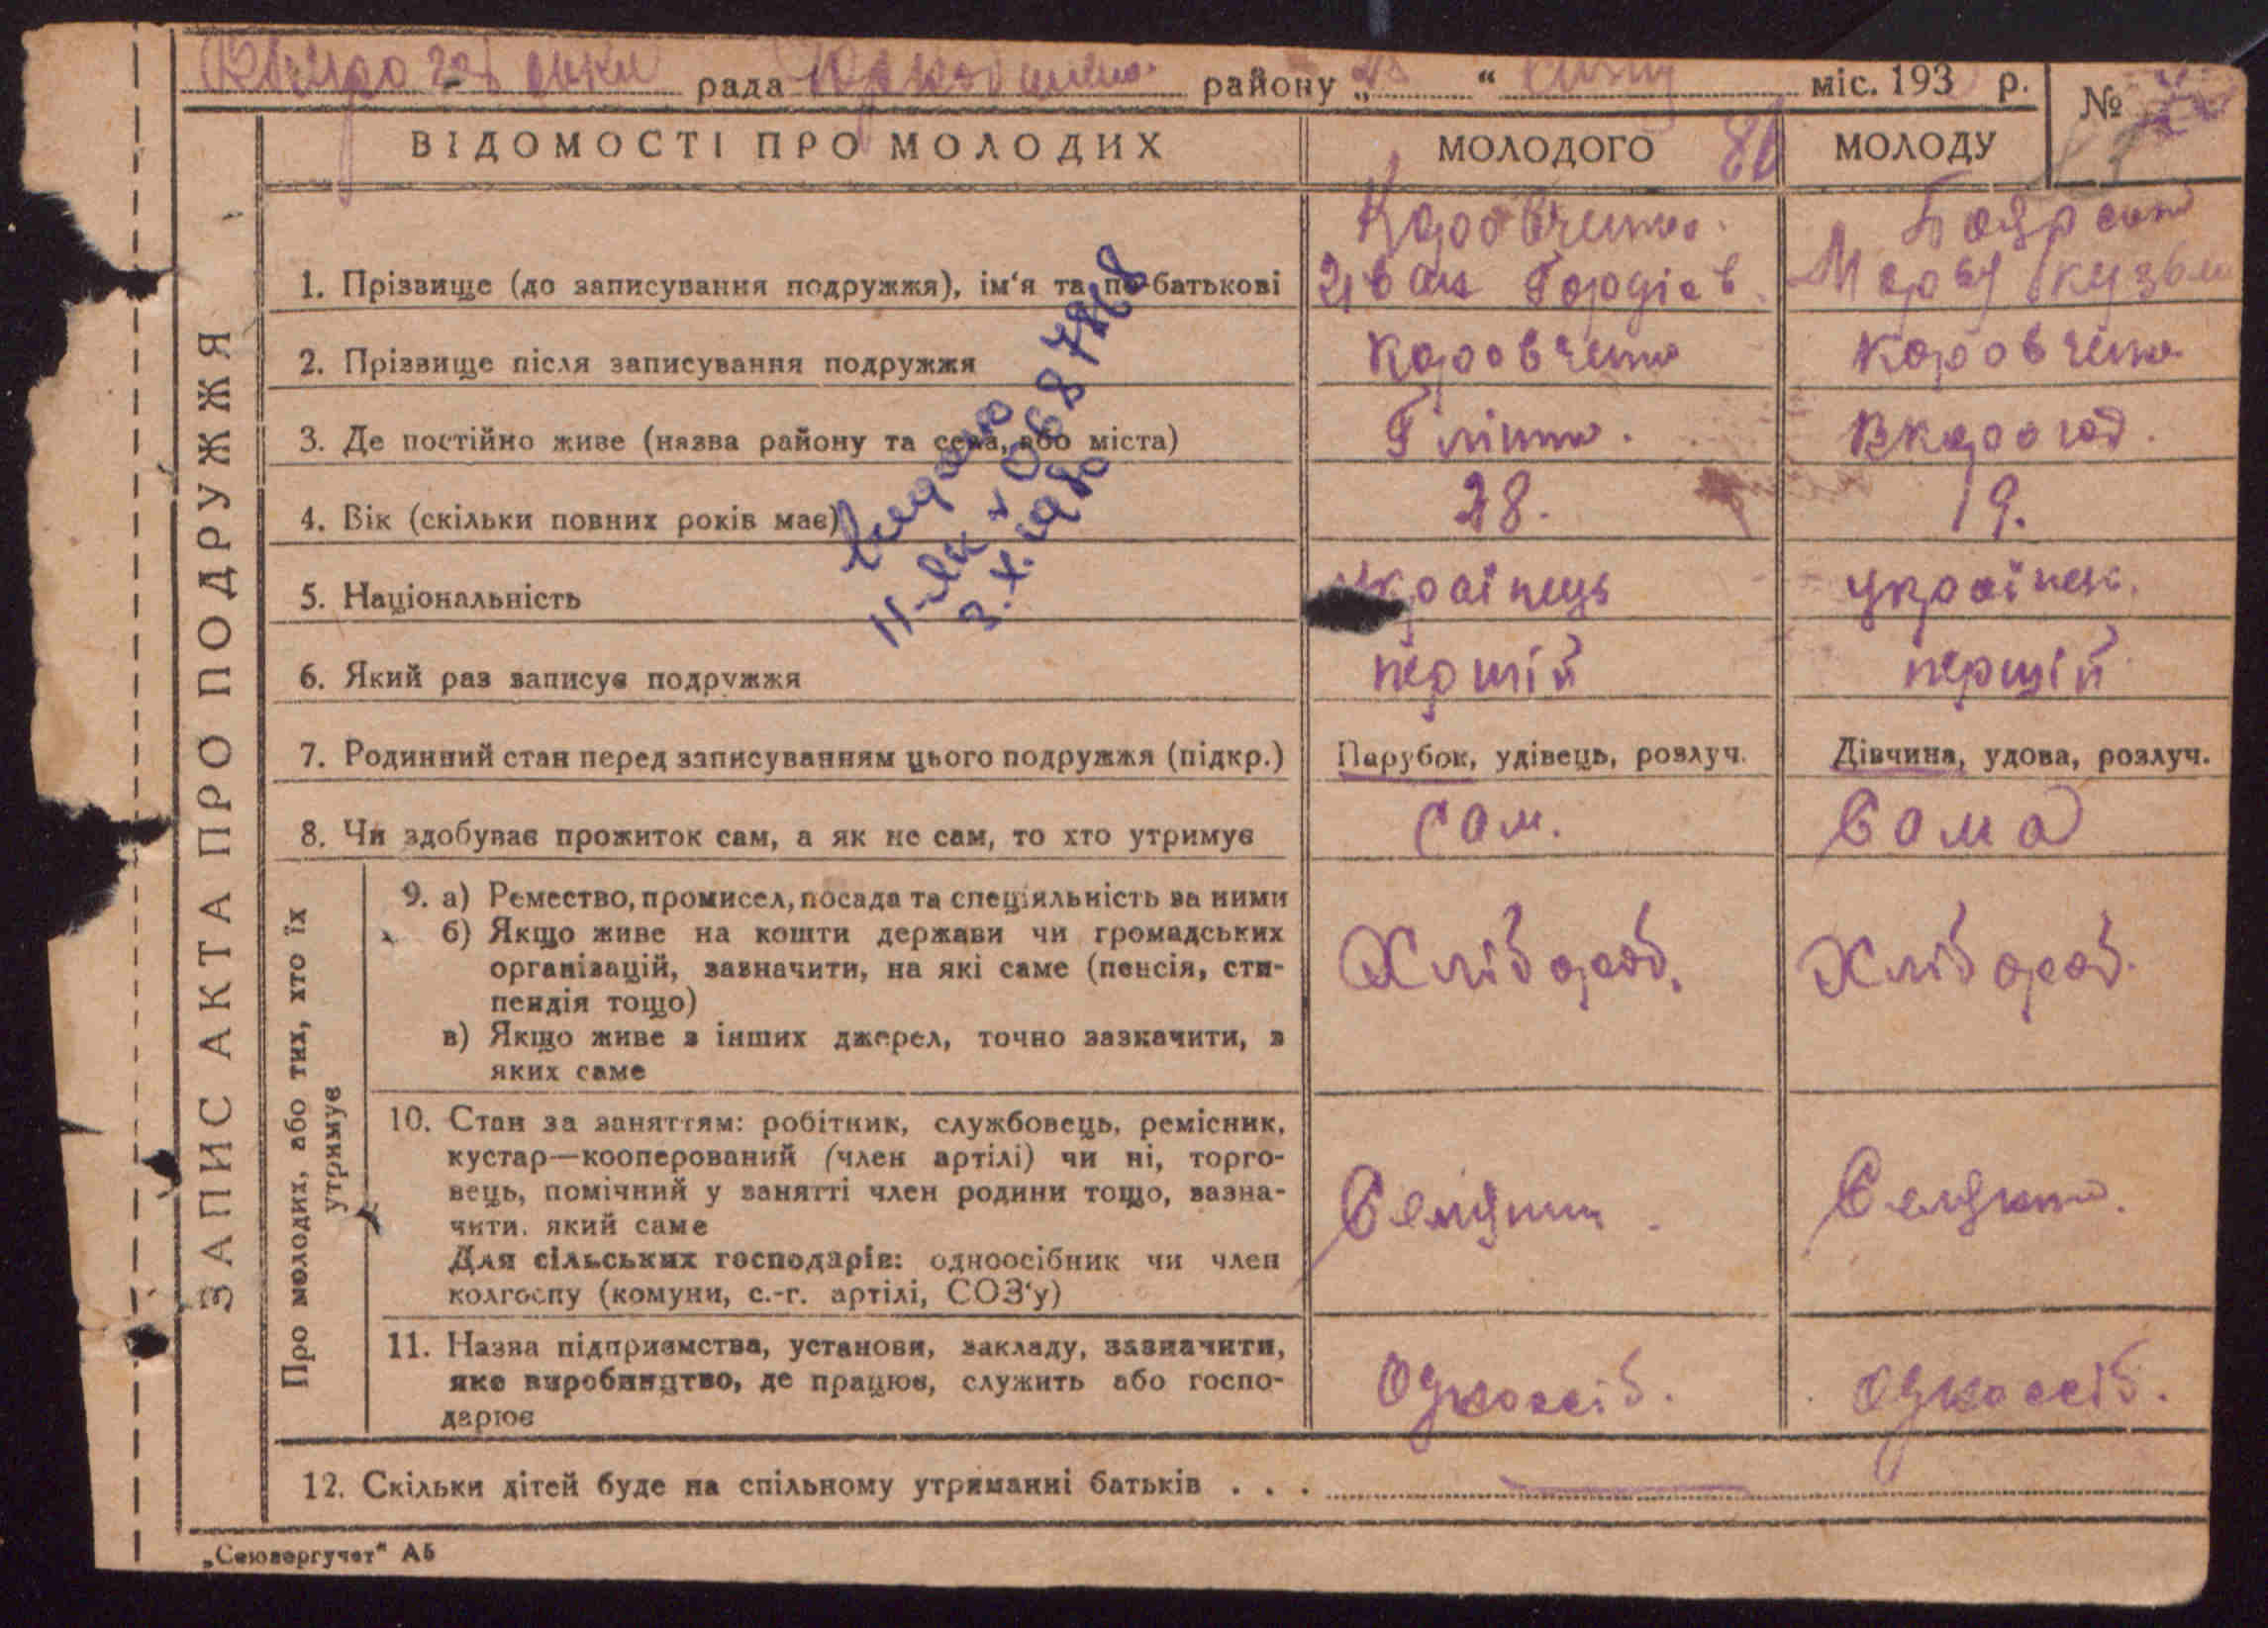 рада району „ “ міс. 193 р. №
ВІДОМОСТІ ПРО МОЛОДИХ МОЛОДОГО МОЛОДУ
ЗАПИС АКТА ПРО ПОДРУЖЖЯ
Коровченко
1. Прізвище (до записування подружжя), ім‘я та по-батькові Іван Гордієв.
2. Прізвище після записування подружжя Коровченко Коровченко
3. Де постійно живе (назва району та села, або міста)
4. Вік (скільки повних років має) 28. 19.
видано
3.X.1980
5. Національність українець українк.
6. Який раз записує подружжя перший перший
7. Родинний стан перед записуванням цього подружжя (підкр.) Парубок, удівець, розлуч. Дівчина, удова, розлуч.
8. Чи здобуває прожиток сам, а як не сам, то хто утримує сам. Сама
Про молодих, або тих, хто їх
утримує
9. а) Ремество, промисел, посада та спеціяльність за ними
б) Якщо живе на кошти держави чи громадських
організацій, зазначити, на які саме (пенсія, сти-
пендія тощо)
Хлібороб. Хлібороб.
в) Якщо живе з інших джерел, точно зазначити, з
яких саме
10. Стан за заняттям: робітник, службовець, ремісник,
кустар—кооперований (член артілі) чи ні, торго-
вець, помічний у занятті член родини тощо, зазна-
чити, який саме
Селянин. Селянка.
Для сільських господарів: одноосібник чи член
колгоспу (комуни, с.-г. артілі, СОЗ‘у)
11. Назва підприємства, установи, закладу, зазначити,
яке виробництво, де працює, служить або госпо-
дарює
Одноосіб. Одноосіб.
12. Скільки дітей буде на спільному утриманні батьків . . .
„Союзоргучет“ А5